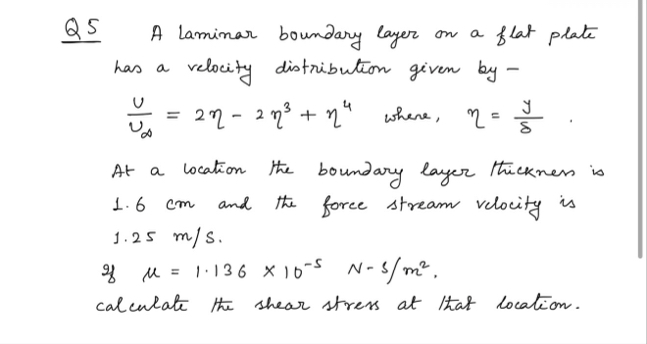 Q5 A laminar boundary layer on a flat plate
has a velocity distribution given by –
U/U∞ = 2η - 2η³ + η⁴ where, η = y/δ .
At a location the boundary layer thickness is
1.6 cm and the force stream velocity is
1.25 m/s.
If μ = 1.136 × 10⁻⁵ N-s/m².
calculate the shear stress at that location.